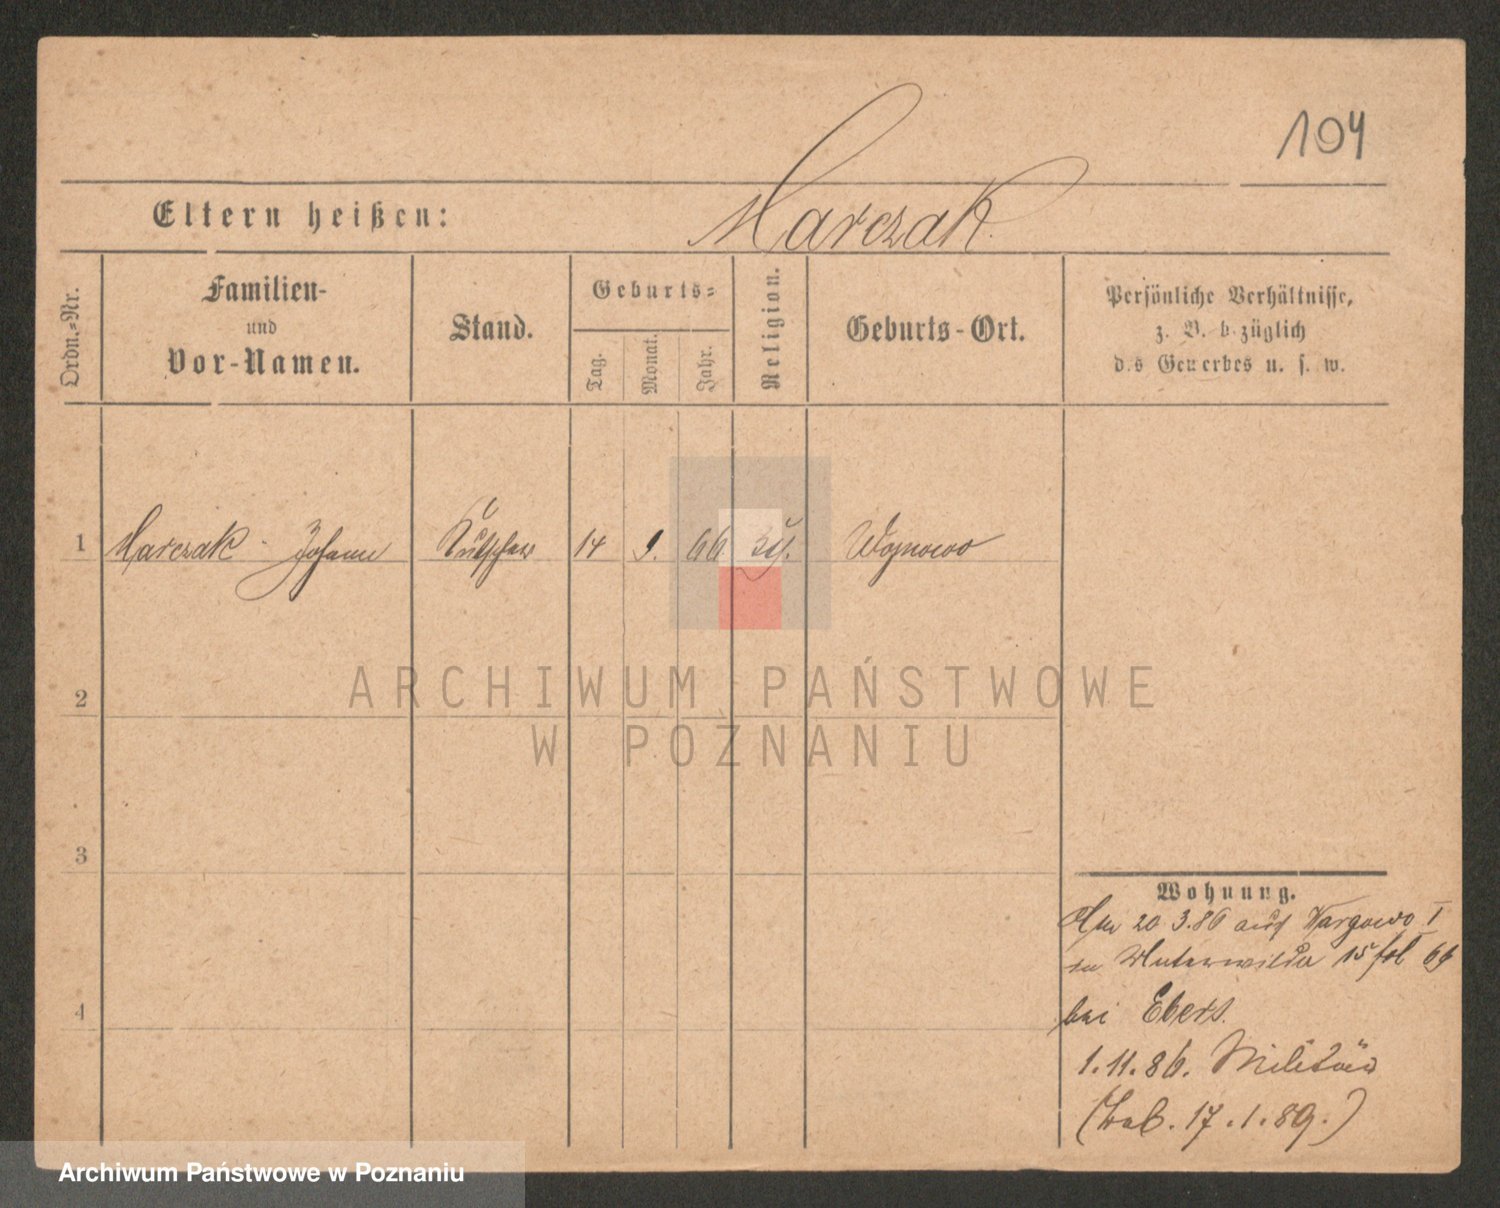 104
Eltern heißen: Marczak.
Ordn.-Nr.
Familien-
und
Vor-Namen.
Stand.
Geburts-
Tag.
Monat.
Jahr.
Religion.
Geburts-Ort.
Persönliche Verhältnisse,
z. B. bezüglich
des Gewerbes u. s. w.
1 Marczak Johann 14 9. 66. Wojnowo
2
ARCHIWUM PAŃSTWOWE
W POZNANIU
3
4
Wohnung.
Am 20 3.86 aus Wargowo I
in Unterwilda 15 fol 69
bei Ebers.
1.11.86. Militär
(17.1.89.)
Archiwum Państwowe w Poznaniu